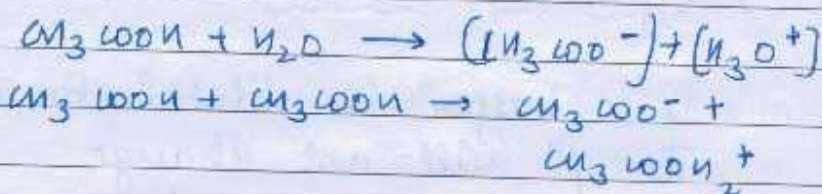 CH₃COOH + H₂O → (CH₃COO⁻) + (H₃O⁺)
CH₃COOH + CH₃COOH → CH₃COO⁻ +
CH₃COOH₂⁺